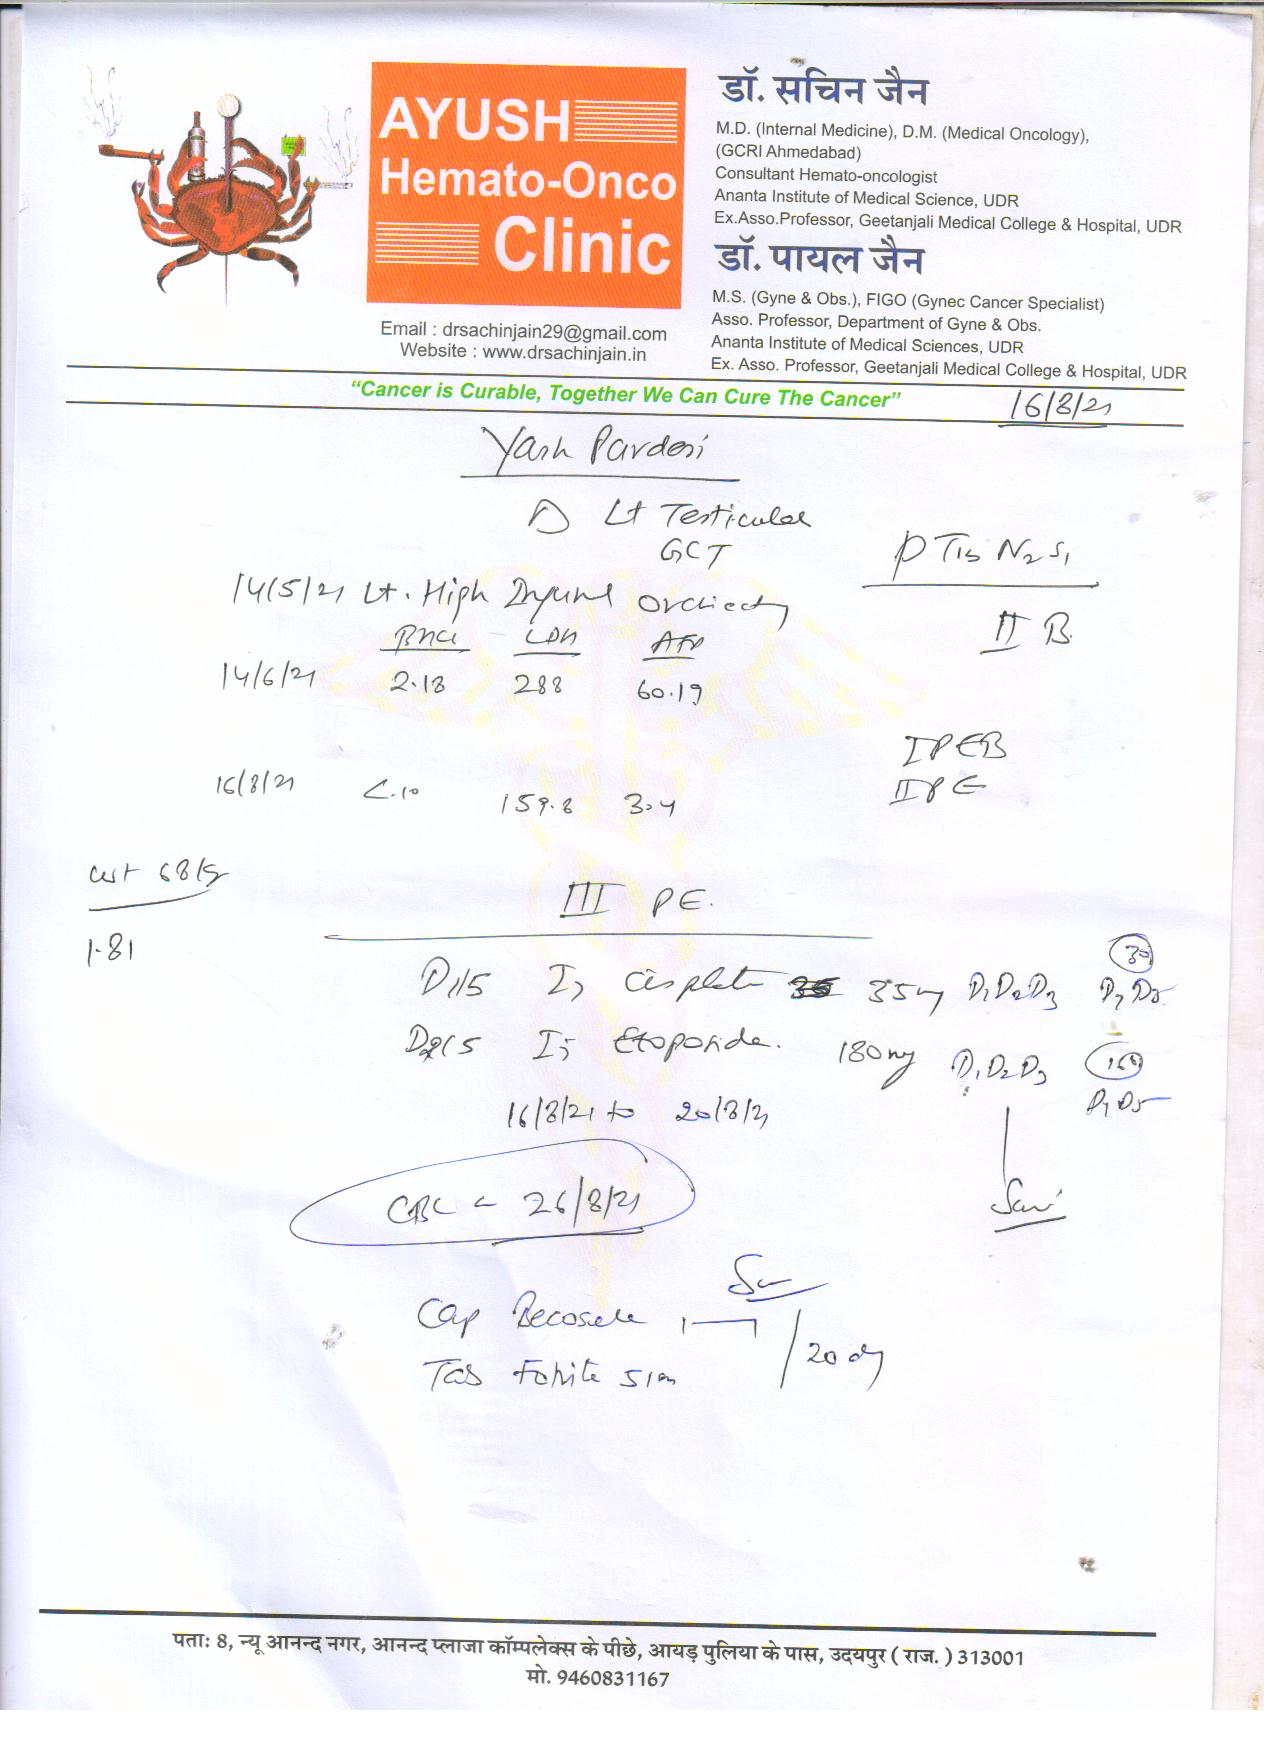 AYUSH
Hemato-Onco
Clinic
Email : drsachinjain29@gmail.com
Website : www.drsachinjain.in
डॉ. सचिन जैन
M.D. (Internal Medicine), D.M. (Medical Oncology),
(GCRI Ahmedabad)
Consultant Hemato-oncologist
Ananta Institute of Medical Science, UDR
Ex.Asso.Professor, Geetanjali Medical College & Hospital, UDR
डॉ. पायल जैन
M.S. (Gyne & Obs.), FIGO (Gynec Cancer Specialist)
Asso. Professor, Department of Gyne & Obs.
Ananta Institute of Medical Sciences, UDR
Ex. Asso. Professor, Geetanjali Medical College & Hospital, UDR
“Cancer is Curable, Together We Can Cure The Cancer”
16/8/21
Yash Pardesi
Lt Testicular
GCT
pT1b N2 S1
II B
14/5/21 Lt. High Inguinal
BHCG LDH AFP
14/6/21 2.18 288 60.19
I PEB
II PE
16/8/21 <.10 159.8 3.4
wt 68 kg
1.81
III PE.
D1/5 Cisplatin 35mg D1D2D3 30
Etoposide. 180mg D1D2D3 160
16/8/21 to 20/8/21
CBC 26/8/21
Cap Becosule 1
Tab Folvite 5mg
20 day
पताः 8, न्यू आनन्द नगर, आनन्द प्लाजा कॉम्पलेक्स के पीछे, आयड़ पुलिया के पास, उदयपुर ( राज. ) 313001
मो. 9460831167